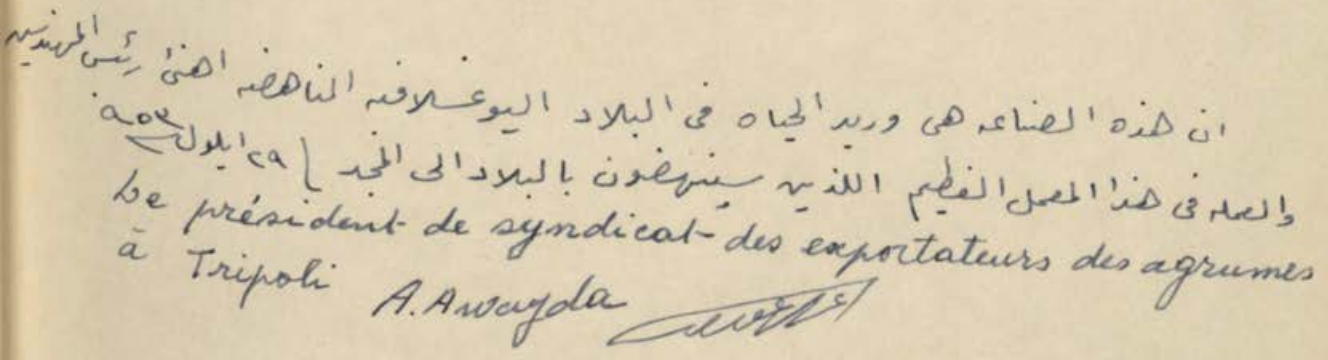 ان هذه الصناعه هى وريد الحياه فى البلاد اليوغسلافيه الناهضه اهنئ رئيس المهندسين
والعمله فى هذا المعمل العظيم اللذين سينهضون بالبلاد الى المجد ٢٩ ايلول ٩٥٣
Le président de syndicat des exportateurs des agrumes
à Tripoli A. Awayda